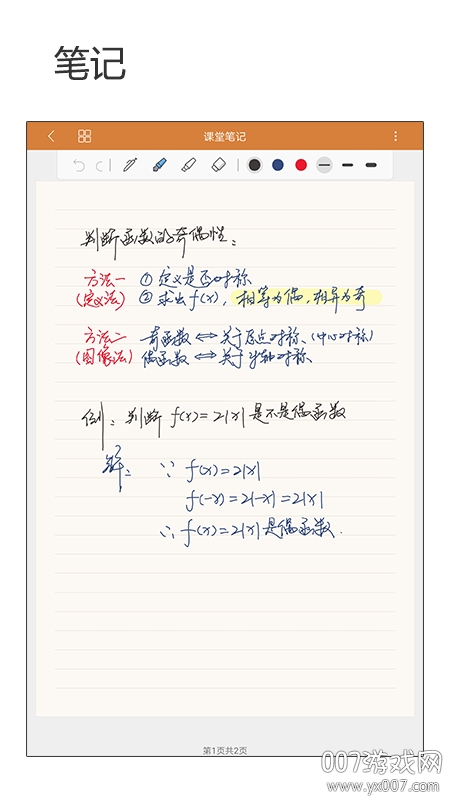 笔记
课堂笔记
判断函数的奇偶性:
方法一 ① 定义是否对称
(定义法) ② 求出f(x), 相等为偶,相异为奇
方法二 奇函数 ⇔ 关于原点对称、(中心对称)
(图像法) 偶函数 ⇔ 关于y轴对称、
例:判断 f(x)=2|x| 是不是偶函数
解: ∵ f(x)=2|x|
f(-x)=2|-x|=2|x|
∴ f(x)=2|x| 是偶函数.
第1页共2页
007游戏网
www.yx007.com